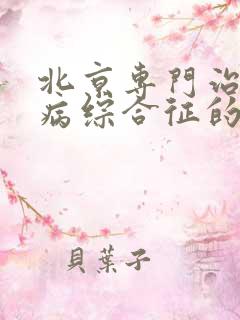 北京専門治
病综合征的
貝葉子